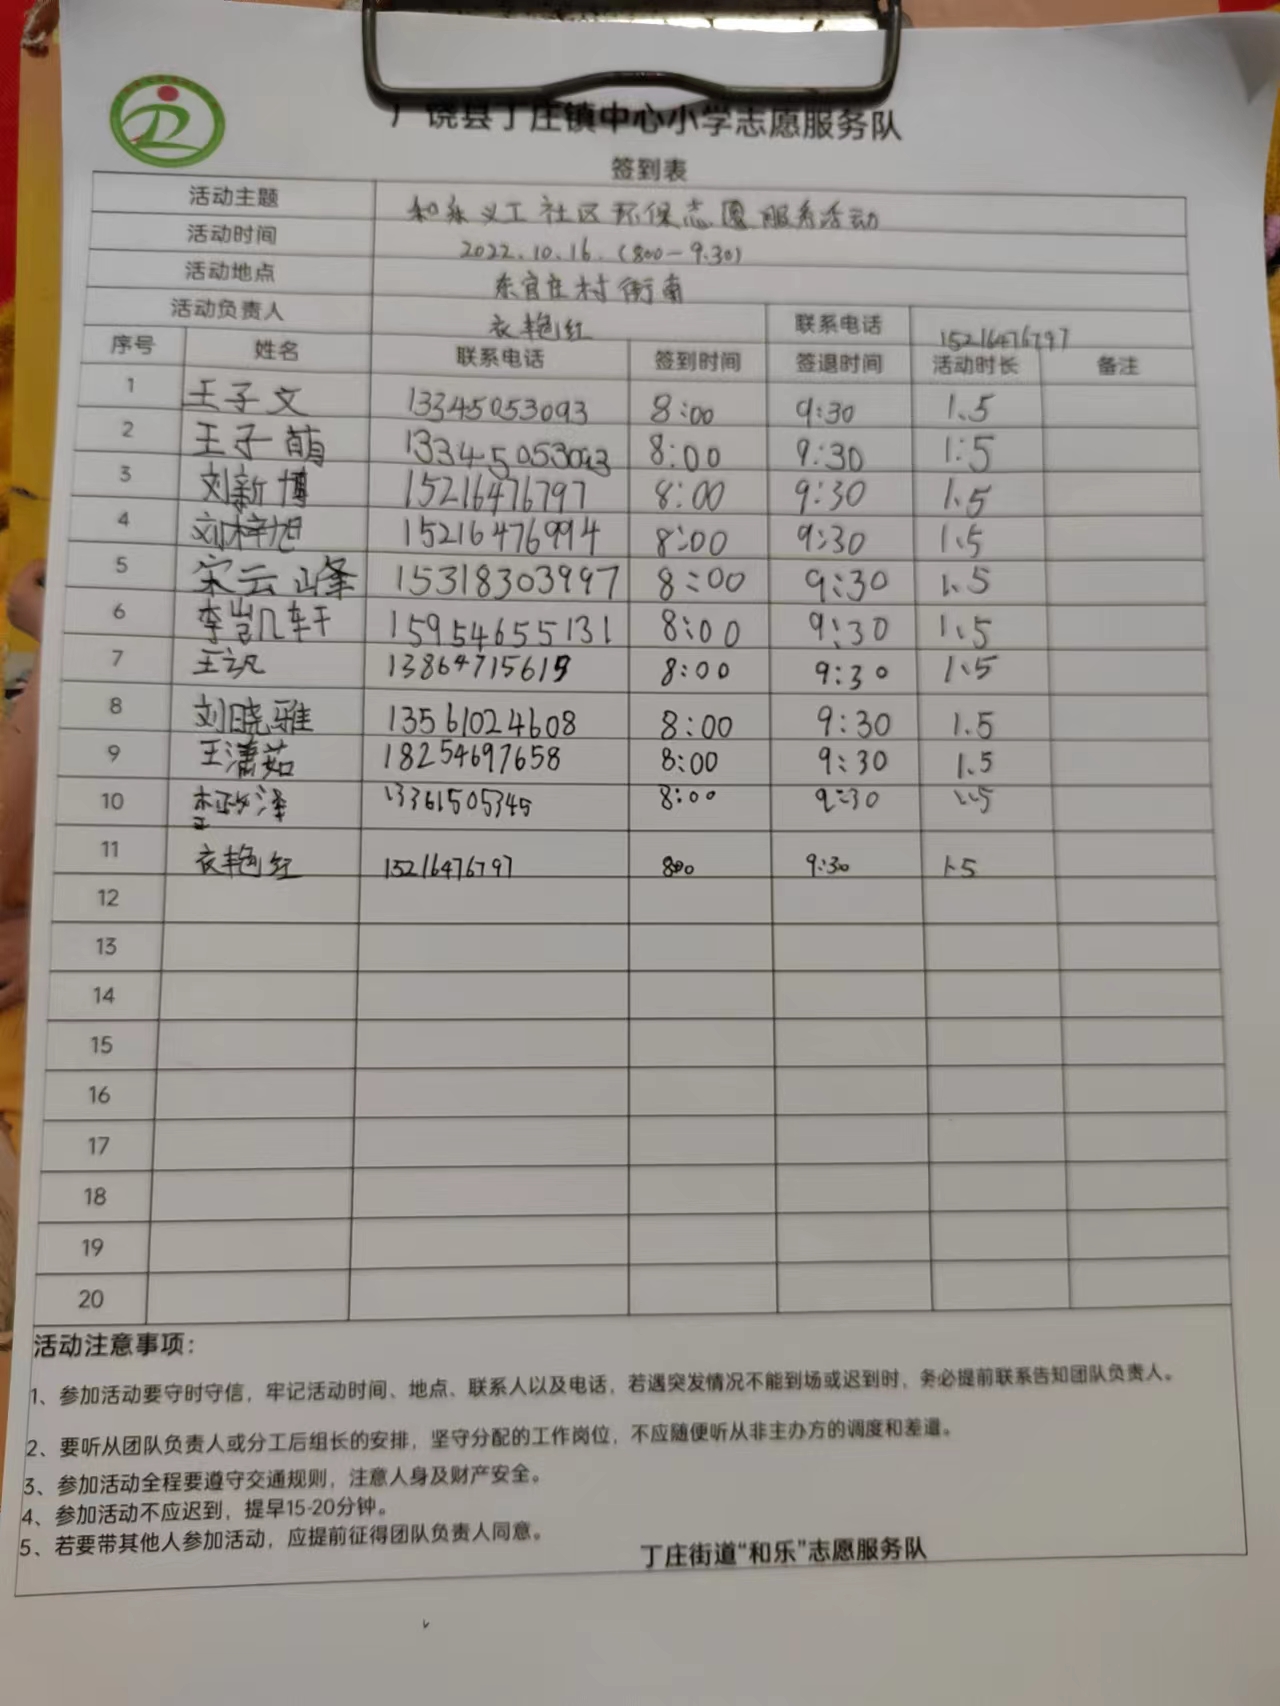 广饶县丁庄镇中心小学志愿服务队
签到表
活动主题 和乐义工社区环保志愿服务活动
活动时间 2022.10.16.(8:00-9:30)
活动地点 东官庄村街南
活动负责人 衣艳红 联系电话 15216476797
序号 姓名 联系电话 签到时间 签退时间 活动时长 备注
1 王子文 13345053093 8:00 9:30 1.5
2 王子萌 13345053093 8:00 9:30 1.5
3 刘新博 15216476797 8:00 9:30 1.5
4 刘梓旭 15216476994 8:00 9:30 1.5
5 宋云峰 15318303997 8:00 9:30 1.5
6 李凯轩 15954655131 8:00 9:30 1.5
7 王 13864715619 8:00 9:30 1.5
8 刘晓雅 13561024608 8:00 9:30 1.5
9 王潇茹 18254697658 8:00 9:30 1.5
10 泽 13361505345 8:00 9:30 1.5
11 衣艳红 15216476797 8:00 9:30 1.5
12
13
14
15
16
17
18
19
20
活动注意事项：
1、参加活动要守时守信，牢记活动时间、地点、联系人以及电话，若遇突发情况不能到场或迟到时，务必提前联系告知团队负责人。
2、要听从团队负责人或分工后组长的安排，坚守分配的工作岗位，不应随便听从非主办方的调度和差遣。
3、参加活动全程要遵守交通规则，注意人身及财产安全。
4、参加活动不应迟到，提早15-20分钟。
5、若要带其他人参加活动，应提前征得团队负责人同意。
丁庄街道“和乐”志愿服务队